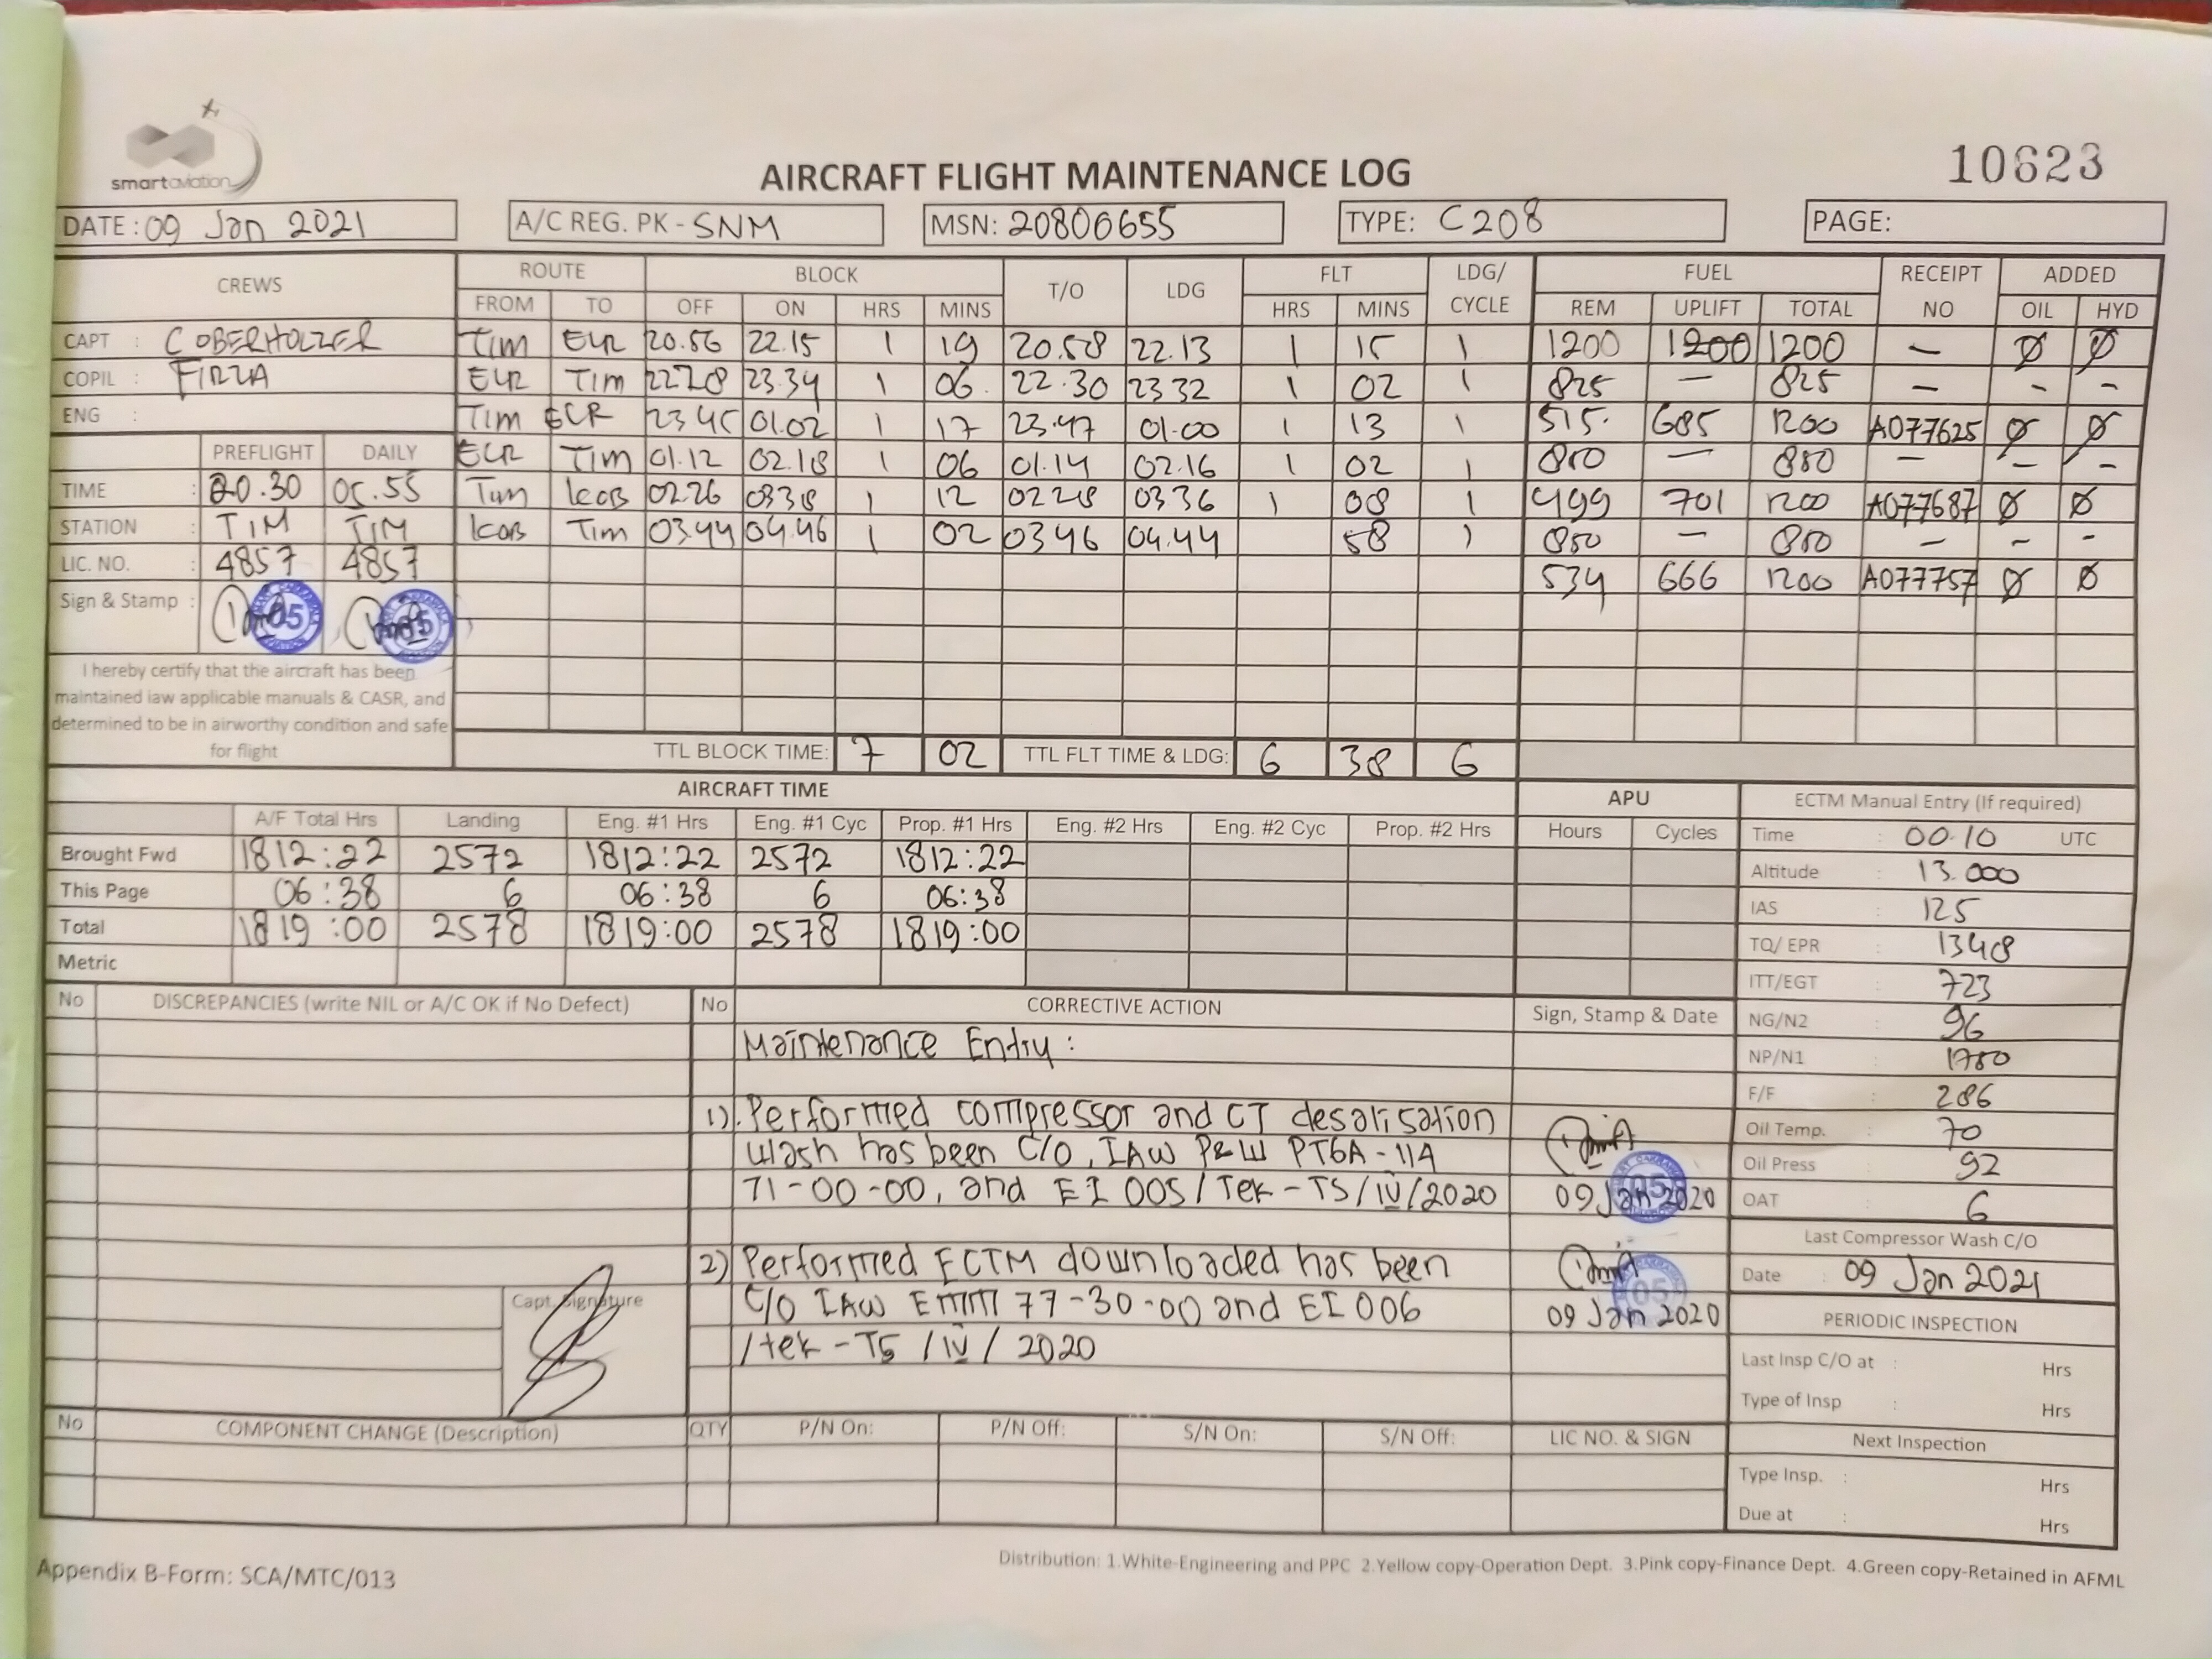 smartaviation
AIRCRAFT FLIGHT MAINTENANCE LOG
10623
DATE: 09 Jan 2021
A/C REG. PK - SNM
MSN: 20806655
TYPE: C208
PAGE:
CREWS ROUTE BLOCK T/O LDG FLT LDG/ CYCLE FUEL RECEIPT NO ADDED
FROM TO OFF ON HRS MINS HRS MINS REM UPLIFT TOTAL OIL HYD
CAPT : C OBERHOLZER
COPIL : FIRZA
ENG :
Tim ELR 20.56 22.15 1 19 20.58 22.13 1 15 1 1200 1200 1200 - Ø Ø
ELR Tim 2228 23.34 1 06 22.30 23 32 1 02 1 825 - 825 - - -
Tim ELR 23 45 01.02 1 17 23.47 01.00 1 13 1 515. 685 1200 A077625 Ø Ø
ELR Tim 01.12 02.18 1 06 01.14 02.16 1 02 1 850 - 850 - - -
Tim KOB 02 26 0338 1 12 02 28 03 36 1 08 1 499 701 1200 A077687 Ø Ø
KOB Tim 03.44 04.46 1 02 03 46 04.44 58 1 850 - 850 - - -
534 666 1200 A077757 Ø Ø
PREFLIGHT DAILY
TIME : 20.30 05.55
STATION : TIM TIM
LIC. NO. : 4857 4857
Sign & Stamp :
05
I hereby certify that the aircraft has been
maintained iaw applicable manuals & CASR, and
determined to be in airworthy condition and safe
for flight
TTL BLOCK TIME: 7 02 TTL FLT TIME & LDG: 6 38 6
AIRCRAFT TIME
APU
A/F Total Hrs Landing Eng. #1 Hrs Eng. #1 Cyc Prop. #1 Hrs Eng. #2 Hrs Eng. #2 Cyc Prop. #2 Hrs Hours Cycles
Brought Fwd 1812:22 2572 1812:22 2572 1812:22
This Page 06:38 6 06:38 6 06:38
Total 1819:00 2578 1819:00 2578 1819:00
Metric
ECTM Manual Entry (If required)
Time : 00.10 UTC
Altitude : 13.000
IAS : 125
TQ/ EPR : 1348
ITT/EGT : 723
NG/N2 : 96
NP/N1 : 1780
F/F : 286
Oil Temp. : 70
Oil Press : 92
OAT : 6
Last Compressor Wash C/O
Date : 09 Jan 2021
PERIODIC INSPECTION
Last Insp C/O at : Hrs
Type of Insp : Hrs
Next Inspection
Type Insp. : Hrs
Due at : Hrs
No DISCREPANCIES (write NIL or A/C OK if No Defect) No CORRECTIVE ACTION Sign, Stamp & Date
Maintenance Entry :
1). Performed compressor and CT desalisation
wash has been C/O, IAW P&W PT6A - 114
71-00-00, and EI 005 / Tek - TS / IV / 2020 09 Jan 2020
2) Performed ECTM downloaded has been
C/O IAW EMM 77-30-00 and EI 006 09 Jan 2020
/ tek - TS / IV / 2020
Capt. Signature
No COMPONENT CHANGE (Description) QTY P/N On: P/N Off: S/N On: S/N Off: LIC NO. & SIGN
Appendix B-Form: SCA/MTC/013
Distribution: 1.White-Engineering and PPC 2.Yellow copy-Operation Dept. 3.Pink copy-Finance Dept. 4.Green copy-Retained in AFML